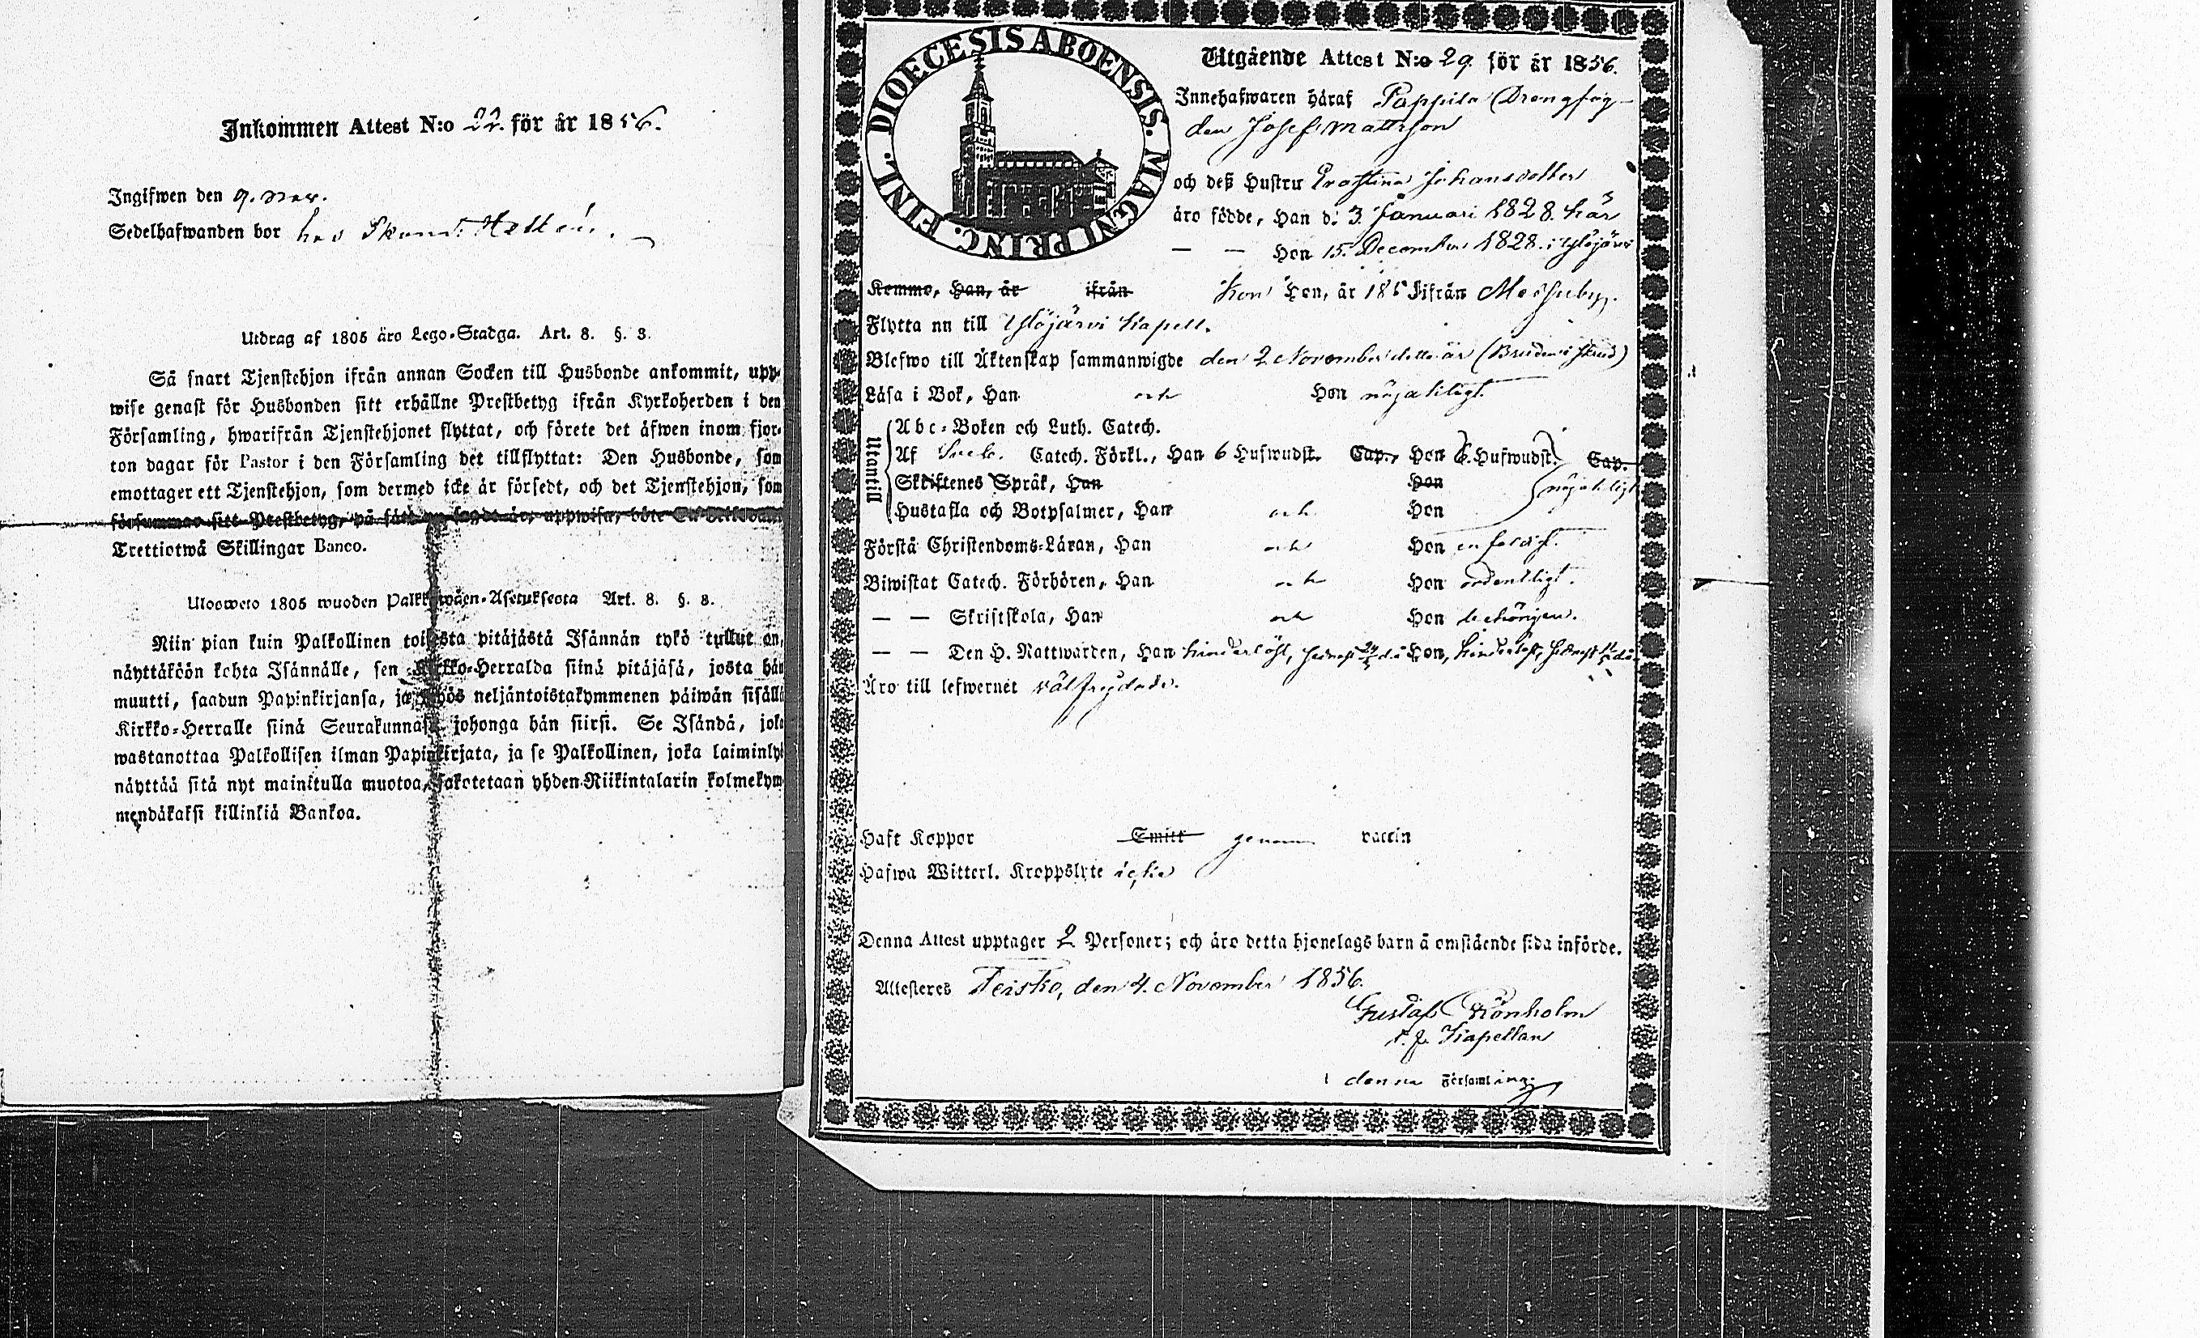 Inkommen Attest N:o 22. för år 1856.
Ingifwen den 9. Nov.
Sedelhafwanden bor hos
Utdrag af 1805 års Lego-Stadga. Art. 8. §. 3.
Så snart Tjenstehjon ifrån annan Socken till Husbonde ankommit, upp-
wise genast för Husbonden sitt erhållne Prestbetyg ifrån Kyrkoherden i den
Församling, hwarifrån Tjenstehjonet flyttat, och förete det äfwen inom fjor-
ton dagar för Pastor i den Församling det tillflyttat: Den Husbonde, som
emottager ett Tjenstehjon, som dermed icke är försedt, och det Tjenstehjon, som
försummar sitt Prestbetyg, på sätt sagdt är, uppwisa, böte En Riksdaler
Trettiotwå Skillingar Banco.
Ulosweto 1805 wuoden Palkkawäen-Asetuksesta Art. 8. §. 3.
Niin pian kuin Palkollinen toisesta pitäjästä Isännän tykö tullut on,
näyttäköön kohta Isännälle, sen Kirkko-Herralda siinä pitäjäsä, josta hän
muutti, saadun Papinkirjansa, ja myös neljäntoistakymmenen päiwän sisällä
Kirkko-Herralle siinä Seurakunnasa, johonga hän siirsi. Se Isändä, joka
wastanottaa Palkollisen ilman Papinkirjata, ja se Palkollinen, joka laiminlyö
näyttää sitä nyt mainitulla muotoa, sakotetaan yhden Riikintalarin kolmekym-
mendäkaksi killinkiä Bankoa.
DIOECESIS ABOENSIS. MAGNI PRINC. FINL.
Utgående Attest N:o 29. för år 1856.
Innehafwaren häraf Pappila Drengfog-
den Josef Mattsson
och deß Hustru Erastina Johansdotter
äro födde, Han d: 3 Januari 1828. här
— — Hon 15. December 1828. i Ylöjärvi
Komme, Han, år ifrån Kom Hon, år 185 ifrån Messuby.
Flytta nu till Ylöjärvi Kapell.
Blefwo till Äktenskap sammanwigde den 2 November detta år (Bruden i skrud)
Läsa i Bok, Han och Hon nöjaktligt.
Utantill
Abc-Boken och Luth. Catech.
Af Sveb. Catech. Förkl., Han 6 Hufwudst. Cap., Hon 6. Hufwudst. Cap.
Skriftenes Språk, Han Hon nöjaktligt
Hustafla och Botpsalmer, Han och Hon
Förstå Christendoms-Läran, Han och Hon enfaldigt.
Biwistat Catech. Förhören, Han och Hon ordentligt.
— — Skriftskola, Han och Hon behörigen.
— — Den H. Nattwarden, Han hinderlöst, senast Hon, hinderlöst, senast
Äro till lefwernet välfrejdade.
Haft Koppor Smitt genom vaccin
Hafwa Witterl. Kroppslyte icke
Denna Attest upptager 2 Personer; och äro detta hjonelags barn å omstående sida införde.
Attesteres Teisko, den 4. November 1856.
Gustaf Rönholm
t. f. Kapellan
i denna Församling